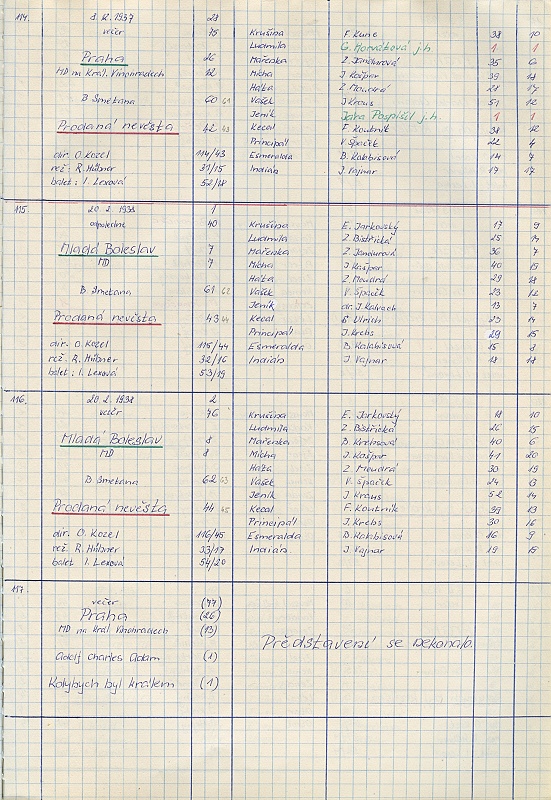 114. 8. 12. 1937 28
večer 75 Krušina F. Kunc 38 10
Ludmila G. Horváthová j.h. 1 1
Praha 26 Mařenka Z. Jandurová 35 6
MD na Král. Vinohradech 12 Mícha J. Kašpar 39 18
Háta Z. Moudrá 28 17
B. Smetana 60 61 Vašek J. Kraus 51 12
Jeník Jaka Pospíšil j.h. 1 1
Prodaná nevěsta 42 43 Kecal F. Koutník 38 12
Principál V. Špaček 22 4
dir. O. Kozel 114/43 Esmeralda D. Kalabisová 14 7
rež: R. Hübner 31/15 Indián J. Vajnar 17 17
balet: I. Lexová 52/18
115. 20. 2. 1938 1
odpoledne 40 Krušina E. Jarkovský 17 9
Ludmila Z. Bistřická 25 14
Mladá Boleslav 7 Mařenka Z. Jandurová 36 7
MD 7 Mícha J. Kašpar 40 19
Háta Z. Moudrá 29 18
B. Smetana 61 62 Vašek V. Špaček 23 12
Jeník dr. J. Kalvach 13 7
Prodaná nevěsta 43 44 Kecal Ulrich 23 14
Principál J. Krebs 29 15
dir. O. Kozel 115/44 Esmeralda D. Kalabisová 15 8
rež. R. Hübner 32/16 Indián J. Vajnar 18 18
balet: I. Lexová 53/19
116. 20. 2. 1938 2
večer 76 Krušina E. Jarkovský 18 10
Ludmila Z. Bistřická 26 15
Mladá Boleslav 8 Mařenka D. Krebsová 40 6
MD 8 Mícha J. Kašpar 41 20
Háta Z. Moudrá 30 19
B. Smetana 62 63 Vašek V. Špaček 24
Jeník J. Kraus 52 14
Prodaná nevěsta 44 45 Kecal F. Koutník 39 13
Principál J. Krebs 30 16
dir. O. Kozel 116/45 Esmeralda D. Kalabisová 16 9
rež. R. Hübner 33/17 Indián J. Vajnar 19 19
balet I. Lexová 54/20
117.
večer (77)
Praha (26)
MD na Král. Vinohradech (13)
Představení se nekonalo.
Adolf Charles Adam (1)
Kdybych byl králem (1)